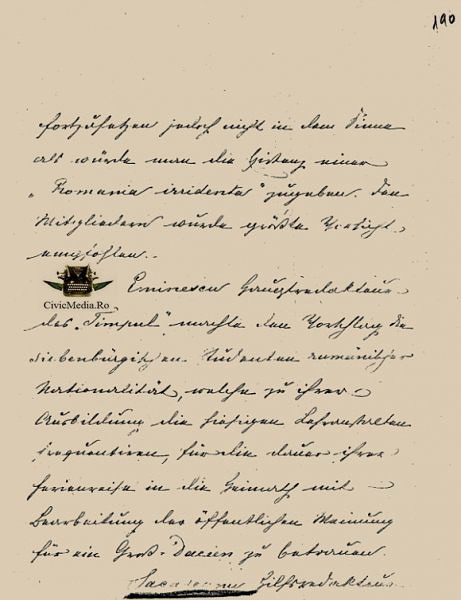 190
fortzusetzen jedoch nicht in dem Sinne
als würde man die Existenz einer
"Romania irridenta" zugeben. Den
Mitgliedern wurde größte Vorsicht
empfohlen.
CivicMedia.Ro
Eminescu Hauptredakteur
des "Timpul" machte den Vorschlag die
siebenbürgischen Studenten rumänischer
Nationalität, welche zu ihrer
Ausbildung die hiesigen Lehranstalten
frequentiren, für die dauer ihrer
Ferienreise in die Heimath mit
Bearbeitung der öffentlichen Meinung
für ein Groß-Dacien zu betrauen.
Hilfsredakteur